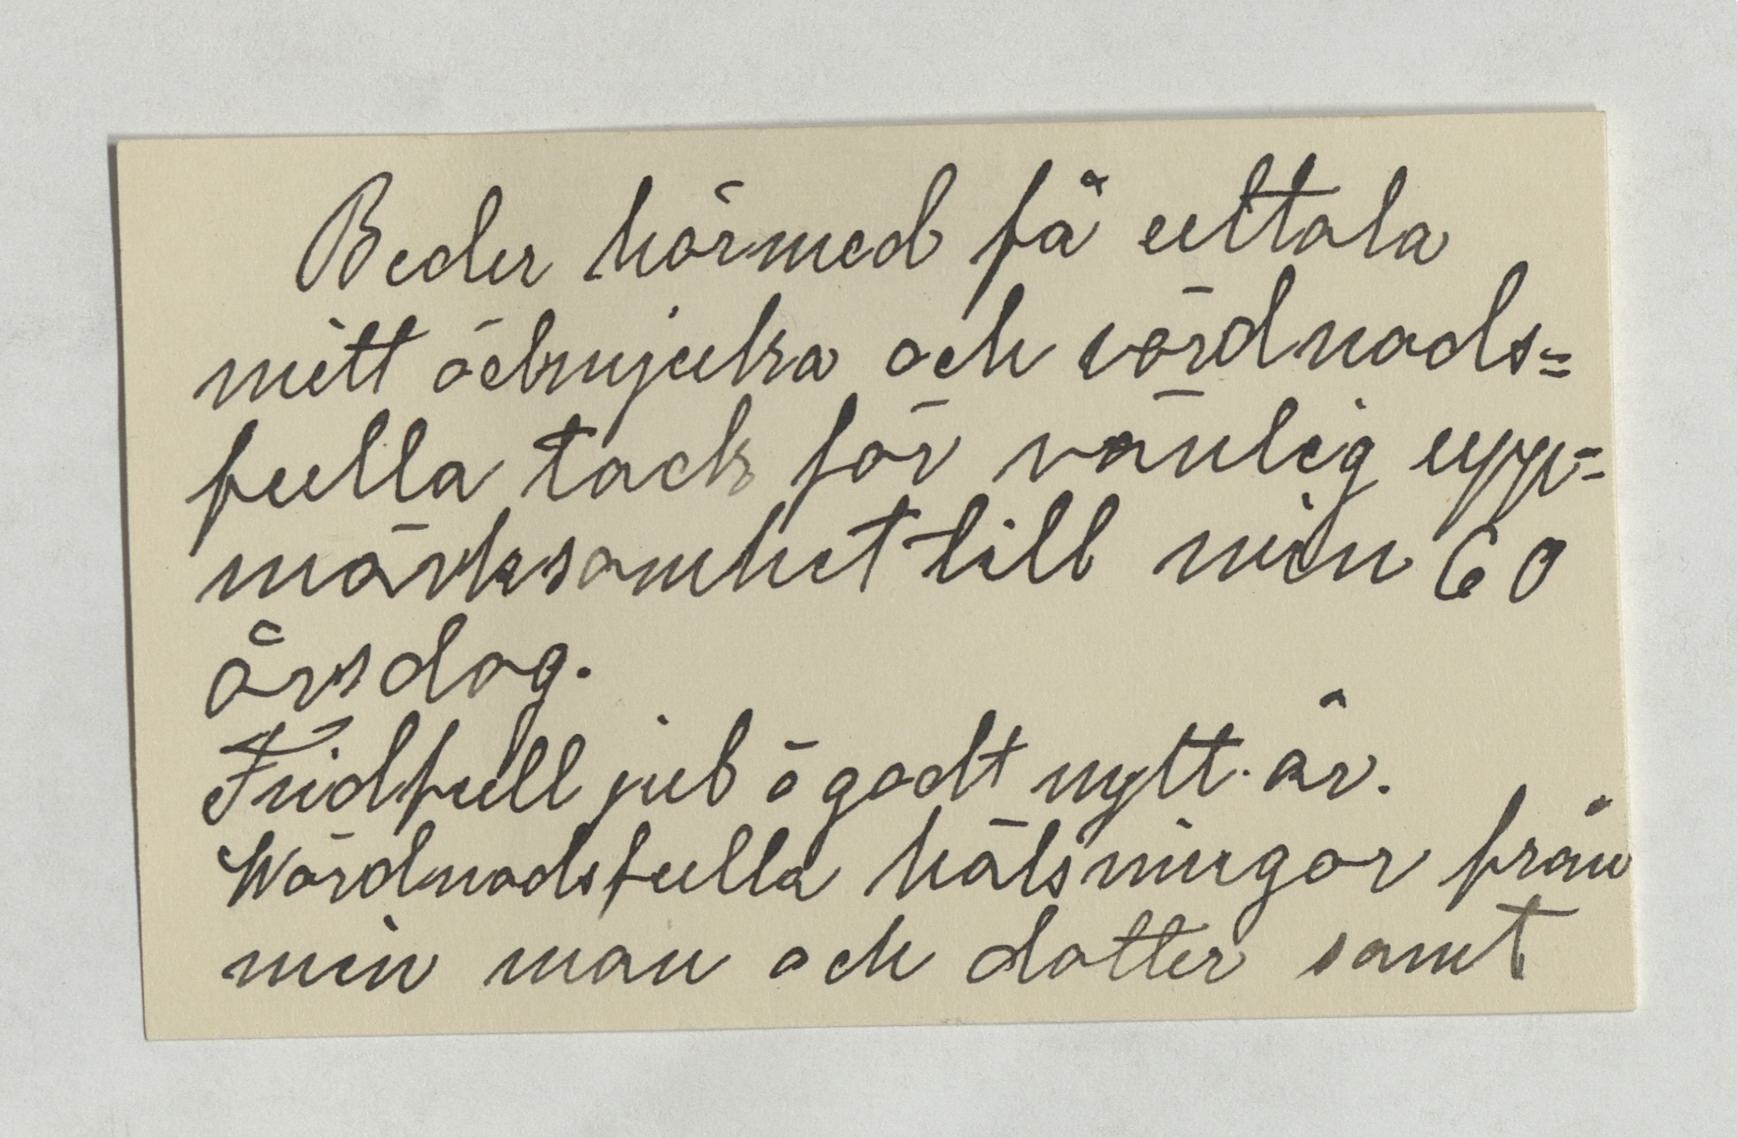 Beder härmed få uttala
mitt ödmjuka och vördnads=
fulla tack för vänlig upp=
märksamhet till min 60
årsdag.
Fridfull jul å godt nytt år.
Wördnadsfulla hälsningar från
min man och dotter samt